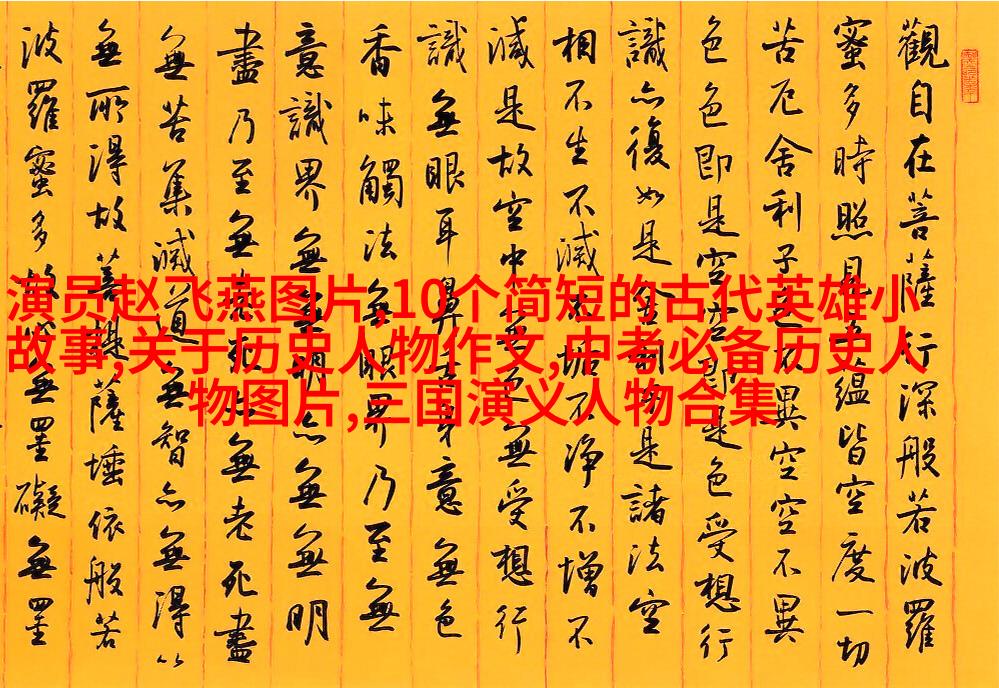 觀自在菩薩行深般若波羅
蜜多時照見五蘊皆空度一切
苦厄舍利子色不異空空不異
色色即是空空即是色受想行
識亦復如是舍利子是諸法空
相不生不滅不垢不淨不增不
減是故空中無色無受想行
識無眼耳鼻舌身意無色
香味觸法無眼界乃至無
意識界無無明亦無無明
盡乃至無老死亦無老死盡
無苦集滅道無智亦無得以
無所得故菩提薩埵依般若
波羅蜜多故心無罣礙無罣
演员赵飞燕图片,10个简短的古代英雄小
故事,关于历史人物作文,中考必备历史人
物图片,三国演义人物合集